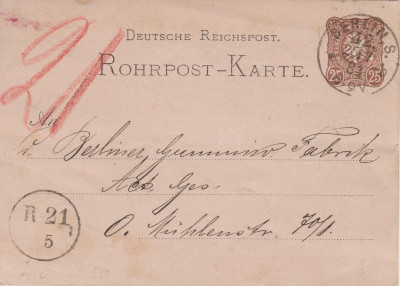 DEUTSCHE REICHSPOST.
ROHRPOST-KARTE.
BERLIN S.
25 25
21
An
Berliner Gummi Fabrik
Act. Ges.
O. Mühlenstr. 70/1.
R 21
5